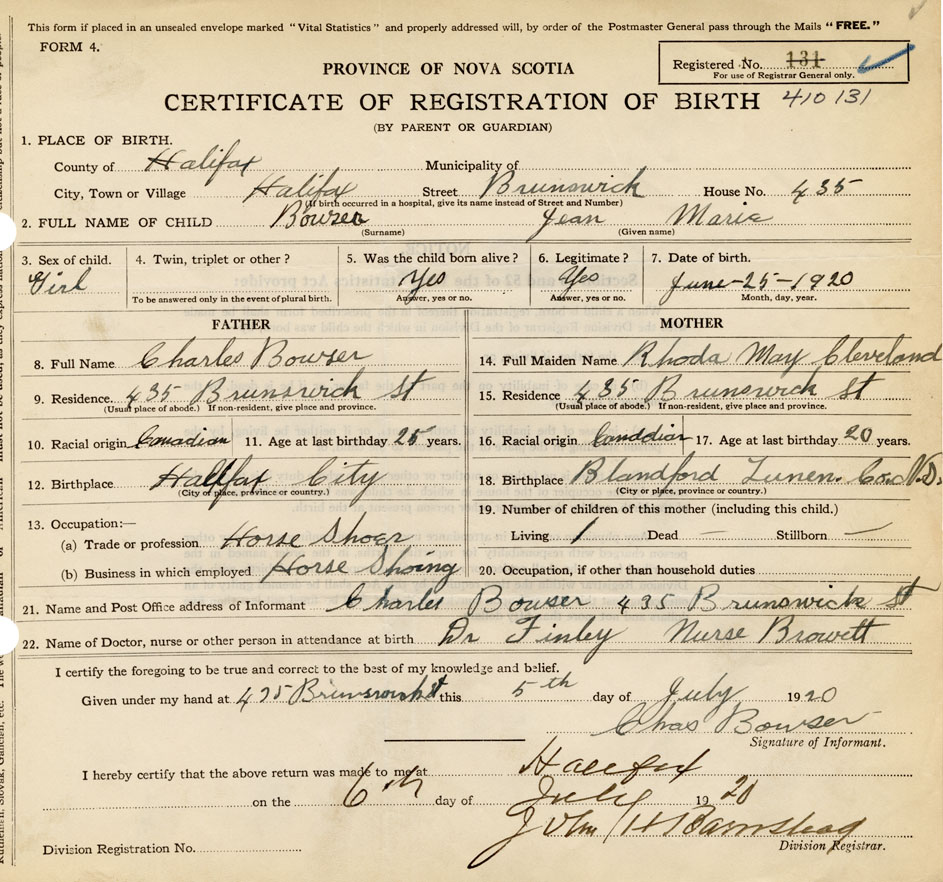 This form if placed in an unsealed envelope marked "Vital Statistics" and properly addressed will, by order of the Postmaster General pass through the Mails "FREE."
FORM 4.
Registered No. 131
For use of Registrar General only.
PROVINCE OF NOVA SCOTIA
CERTIFICATE OF REGISTRATION OF BIRTH 410131
(BY PARENT OR GUARDIAN)
1. PLACE OF BIRTH.
County of Halifax Municipality of
City, Town or Village Halifax Street Brunswick House No. 435
(If birth occurred in a hospital, give its name instead of Street and Number)
2. FULL NAME OF CHILD Bowser Jean Marie
(Surname) (Given name)
3. Sex of child. 4. Twin, triplet or other? 5. Was the child born alive? 6. Legitimate? 7. Date of birth.
Girl Yes Yes June-25-1920
To be answered only in the event of plural birth. Answer, yes or no. Answer, yes or no. Month, day, year.
FATHER MOTHER
8. Full Name Charles Bowser 14. Full Maiden Name Rhoda May Cleveland
9. Residence. 435 Brunswick St 15. Residence 435 Brunswick St
(Usual place of abode.) If non-resident, give place and province. (Usual place of abode.) If non-resident, give place and province.
10. Racial origin Canadian 11. Age at last birthday 25 years. 16. Racial origin Canadian 17. Age at last birthday 20 years.
12. Birthplace Halifax City 18. Birthplace Blandford Lunen. Co.
(City or place, province or country.) (City or place, province or country.)
13. Occupation:— 19. Number of children of this mother (including this child.)
(a) Trade or profession. Horse Shoer Living 1 Dead — Stillborn —
(b) Business in which employed Horse Shoing 20. Occupation, if other than household duties
21. Name and Post Office address of Informant Charles Bowser 435 Brunswick St
22. Name of Doctor, nurse or other person in attendance at birth Dr Finley Nurse Browett
I certify the foregoing to be true and correct to the best of my knowledge and belief.
Given under my hand at 435 Brunswick St this 5th day of July 1920
Chas Bowser
Signature of Informant.
I hereby certify that the above return was made to me at Halifax
on the 6th day of July 1920
John H Barnstead
Division Registrar.
Division Registration No.